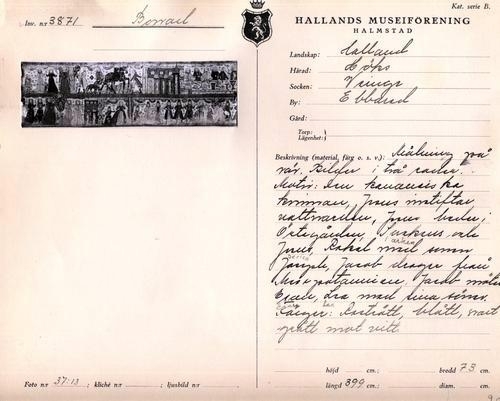 Kat. serie B.
Inv. n:r 3871 Bonad
HALLANDS MUSEIFÖRENING
HALMSTAD
Landskap: Halland
Härad: Höks
Socken:
By:
Gård:
Torp:
Lägenhet:
Beskrivning (material, färg o. s. v.): Målning på
väv. Bilder i två rader.
Motiv: Den kananeiska
kvinnan, Jesus instiftar
nattvarden, Jesus beder i
Örtagården, Sackeus och
Jesus, Rakel med sonen
Josef, Jacob drager från
Mesopotamien, Jacob möter
Esau, Lea med sina söner.
Färger: Rostrött, blått, svart
grått mot vitt.
höjd cm.; bredd 73 cm.
längd 399 cm.; diam. cm.
Foto n:r 37:13 ; kliché n:r ; ljusbild n:r